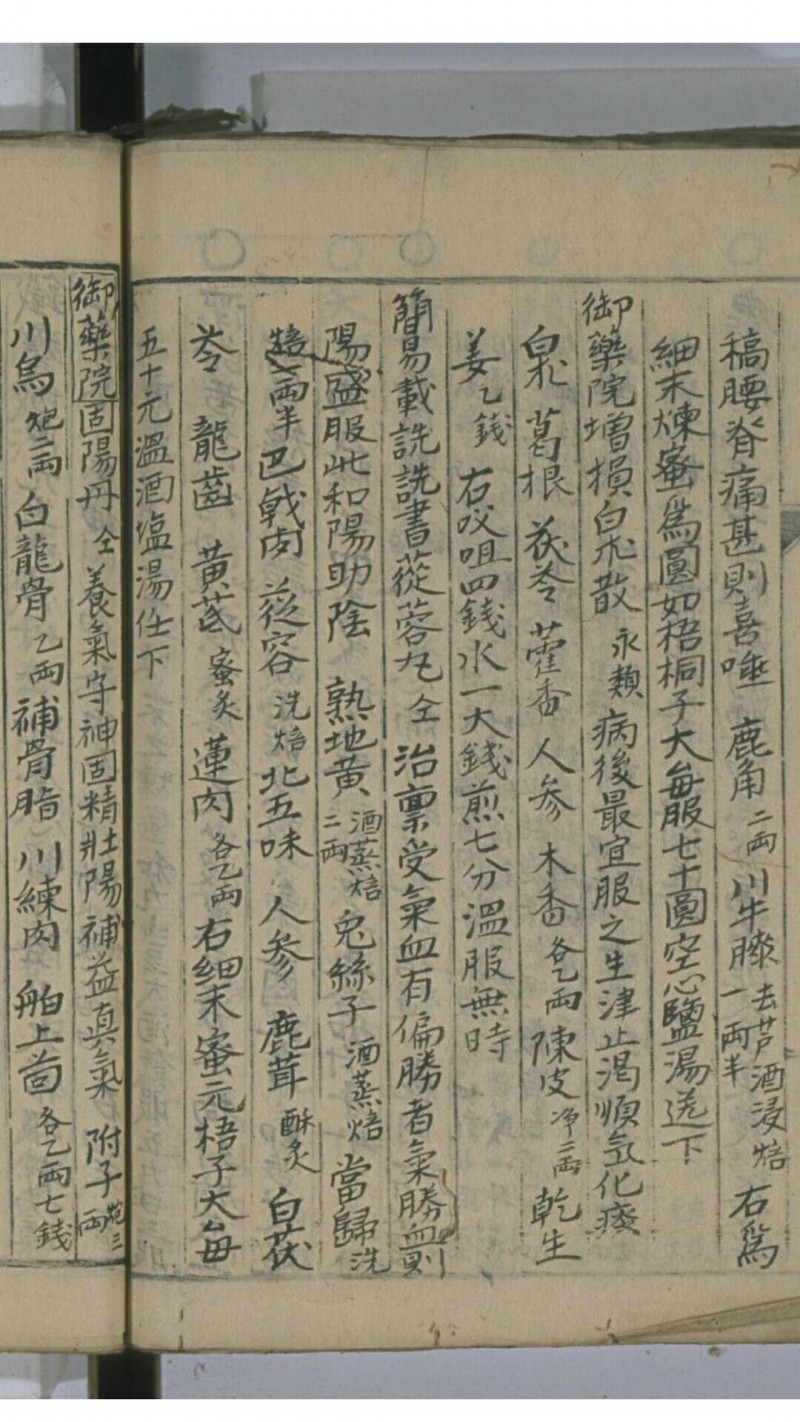 稿腰脊痛甚則喜唾 鹿角二兩 川牛膝去芦酒浸焙一兩半 右爲
細末煉蜜爲圓如梧桐子大每服七十圓空心鹽湯送下
御藥院增損白朮散永類 病後最宜服之生津止渴順氣化痰
白朮 葛根 茯苓 藿香 人参 木香各乙兩 陳皮净二兩 乾生
姜乙錢 右㕮咀四錢水一大錢煎七分温服無時
簡易載詵詵書蓯蓉丸仝 治禀受氣血有偏勝者氣勝血則
陽盛服此和陽助陰 熟地黄酒蒸焙二兩 兔絲子酒蒸焙 當歸洗
焙一兩半 巴戟肉 蓯容洗焙 北五味 人参 鹿茸酥炙 白茯
苓 龍齒 黄芪蜜炙 蓮肉各乙兩 右細末蜜元梧子大每
五十元温酒塩湯任下
御藥院固陽丹仝 養氣守神固精壯陽補益真氣 附子炮三兩
川烏炮二兩 白龍骨乙兩 補骨脂 川練肉 舶上茴各乙兩七錢